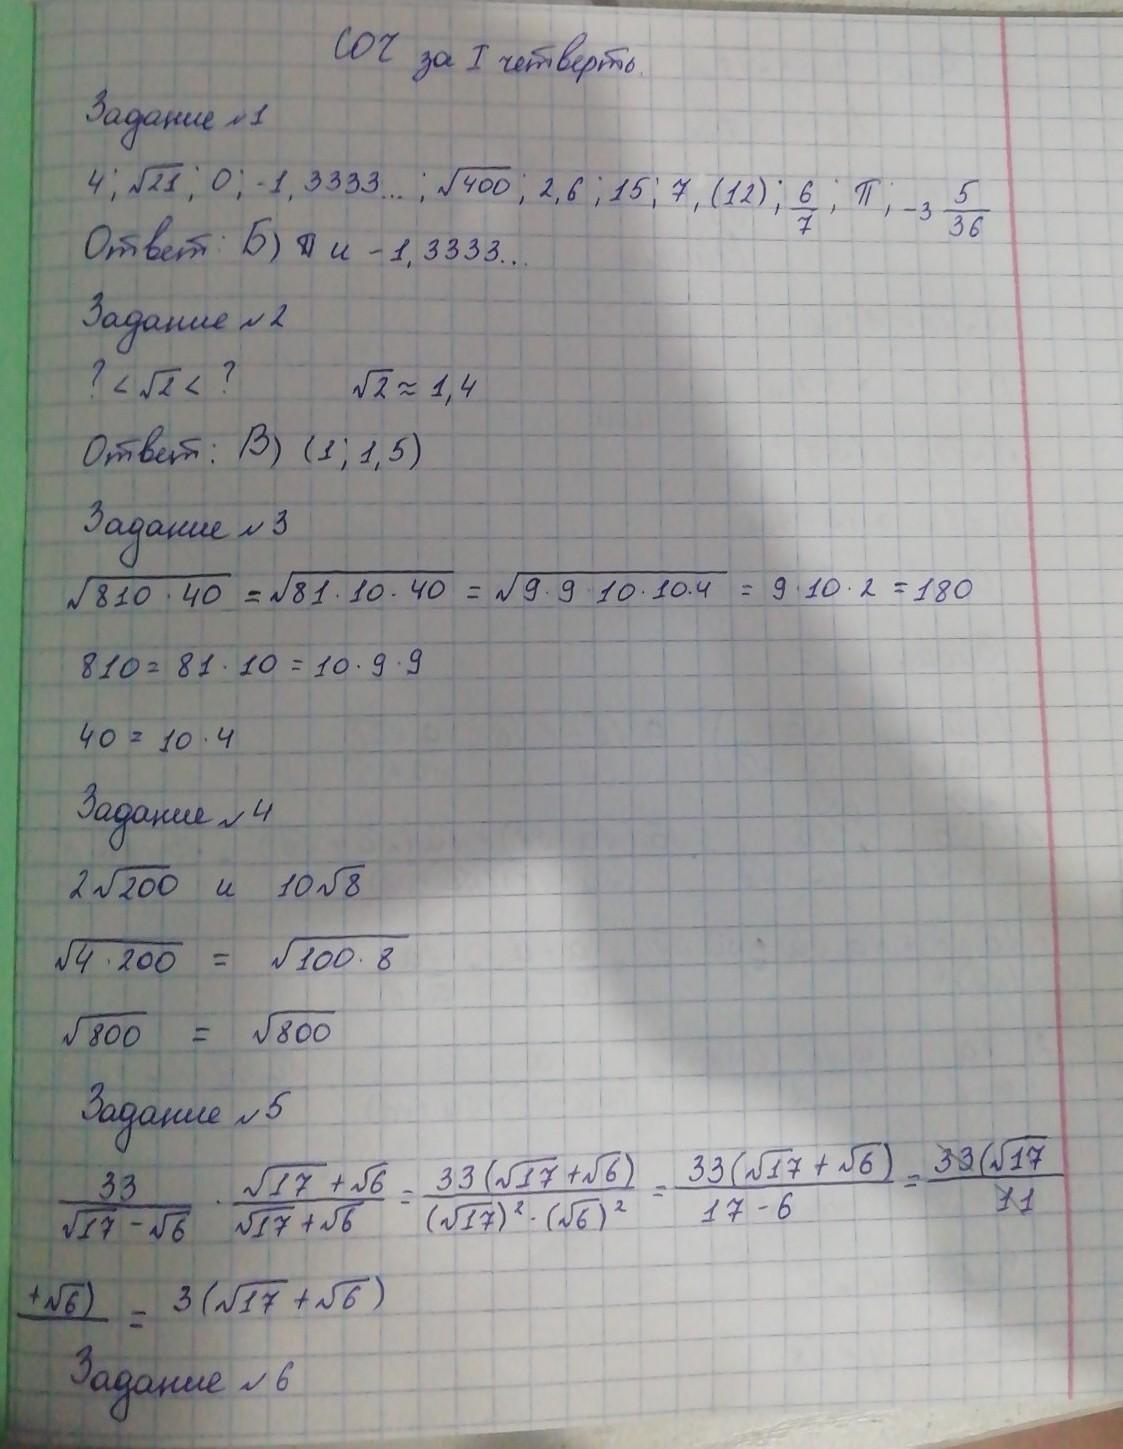 СОЧ за I четверть.
Задание №1
4; √21; 0; -1,3333...; √400; 2,6; 15; 7,(12); 6/7; π; -3 5/36
Ответ: Б) π и -1,3333...
Задание №2
? < √2 < ? √2 ≈ 1,4
Ответ: В) (1; 1,5)
Задание №3
√(810 · 40) = √(81 · 10 · 40) = √(9 · 9 · 10 · 10 · 4) = 9 · 10 · 2 = 180
810 = 81 · 10 = 10 · 9 · 9
40 = 10 · 4
Задание №4
2√200 и 10√8
√(4 · 200) = √(100 · 8)
√800 = √800
Задание №5
33/(√17 - √6) · (√17 + √6)/(√17 + √6) = 33(√17 + √6)/((√17)² - (√6)²) = 33(√17 + √6)/(17 - 6) = 33(√17/11
+√6) = 3(√17 + √6)
Задание №6